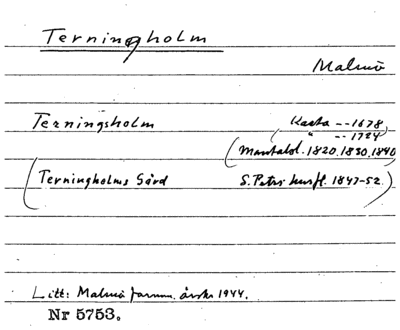 Terningholm
Malmö
Terningsholm (Karta --1678,
" --1724)
(Mantalsl. 1820, 1830, 1840
(Terningholms Gård S. Petri husfl. 1847-52.)
Litt: Malmö fornm. årsskr 1944.
Nr 5753.